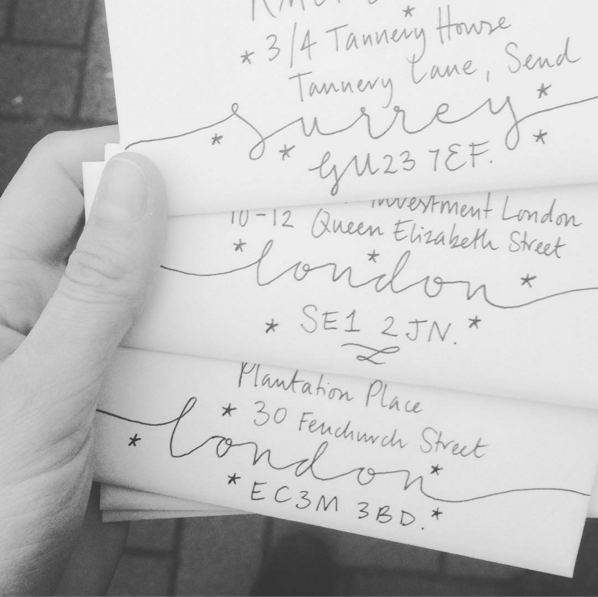 * 3/4 Tannery House
Tannery Lane, Send
Surrey
GU23 7EF.
Investment London
10-12 Queen Elizabeth Street
London
SE1 2JN.
Plantation Place
30 Fenchurch Street
London
EC3M 3BD.